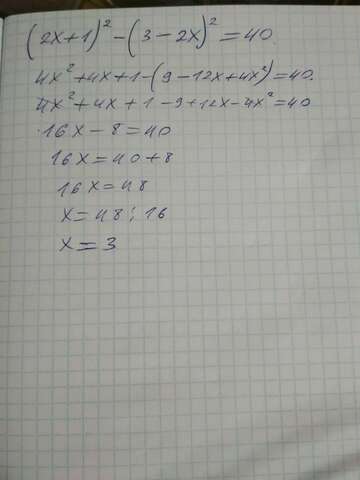 (2x+1)² - (3-2x)² = 40.
4x²+4x+1-(9-12x+4x²)=40.
4x²+4x+1-9+12x-4x²=40
16x-8=40
16x=40+8
16x=48
x=48:16
x=3